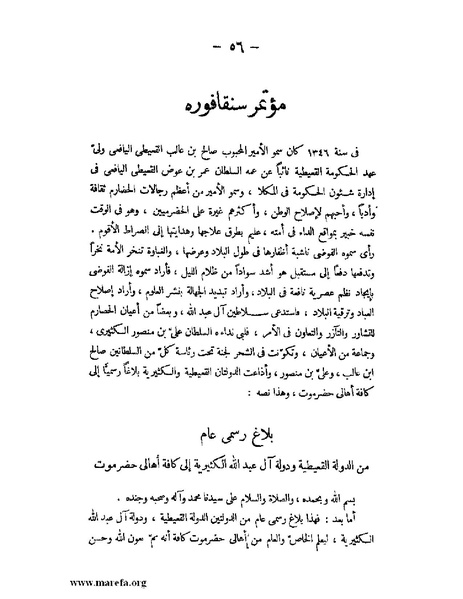 — ٥٦ —
مؤتمر سنقافوره
فى سنة ١٣٤٦ كان سمو الأمير المحبوب صالح بن غالب القعيطى اليافعى ولىّ
عهد الحكومة القعيطية نائبًا عن عمه السلطان عمر بن عوض القعيطى اليافعى فى
إدارة شئون الحكومة فى المكلا ، وسمو الأمير من أعظم رجالات الحضارم ثقافة
وأدبًا ، وأحبهم لإصلاح الوطن ، وأكثرهم غيرة على الحضرميين ، وهو فى الوقت
نفسه خبير بمواقع الداء فى أمته ، عليم بطرق علاجها وهدايتها إلى الصراط الأقوم .
رأى سموه الفوضى ناشبة أظفارها فى طول البلاد وعرضها ، والغباوة تنخر الأمة نخرًا
وتدفعها دفعًا إلى مستقبل هو أشد سوادًا من ظلام الليل ، فأراد سموه إزالة الفوضى
بإيجاد نظم عصرية نافعة فى البلاد ، وأراد تبديد الجهالة بنشر العلوم ، وأراد إصلاح
العباد وترقية البلاد ، فاستدعى سلاطين آل عبد الله ، وبعضًا من أعيان الحضارم
للتشاور والتآزر والتعاون فى الأمر ، فلبى نداءه السلطان علىّ بن منصور الكثيرى ،
وجماعة من الأعيان ، وتكوّنت فى الشحر لجنة تحت رئاسة كلّ من السلطانين صالح
ابن غالب ، وعلىّ بن منصور ، وأذاعت الدولتان القعيطية والكثيرية بلاغًا رسميًا إلى
كافة أهالى حضرموت ، وهذا نصه :
بلاغ رسمى عام
من الدولة القعيطية ودولة آل عبد الله الكثيرية إلى كافة أهالى حضرموت
بسم الله وبحمده ، والصلاة والسلام على سيدنا محمد وآله وصحبه وجنده .
أما بعد : فهذا بلاغ رسمى عام من الدولتين الدولة القعيطية ، ودولة آل عبد الله
الكثيرية ، ليعلم الخاصّ والعام من أهالى حضرموت كافة أنه تمّ بعون الله وحسن
www.marefa.org